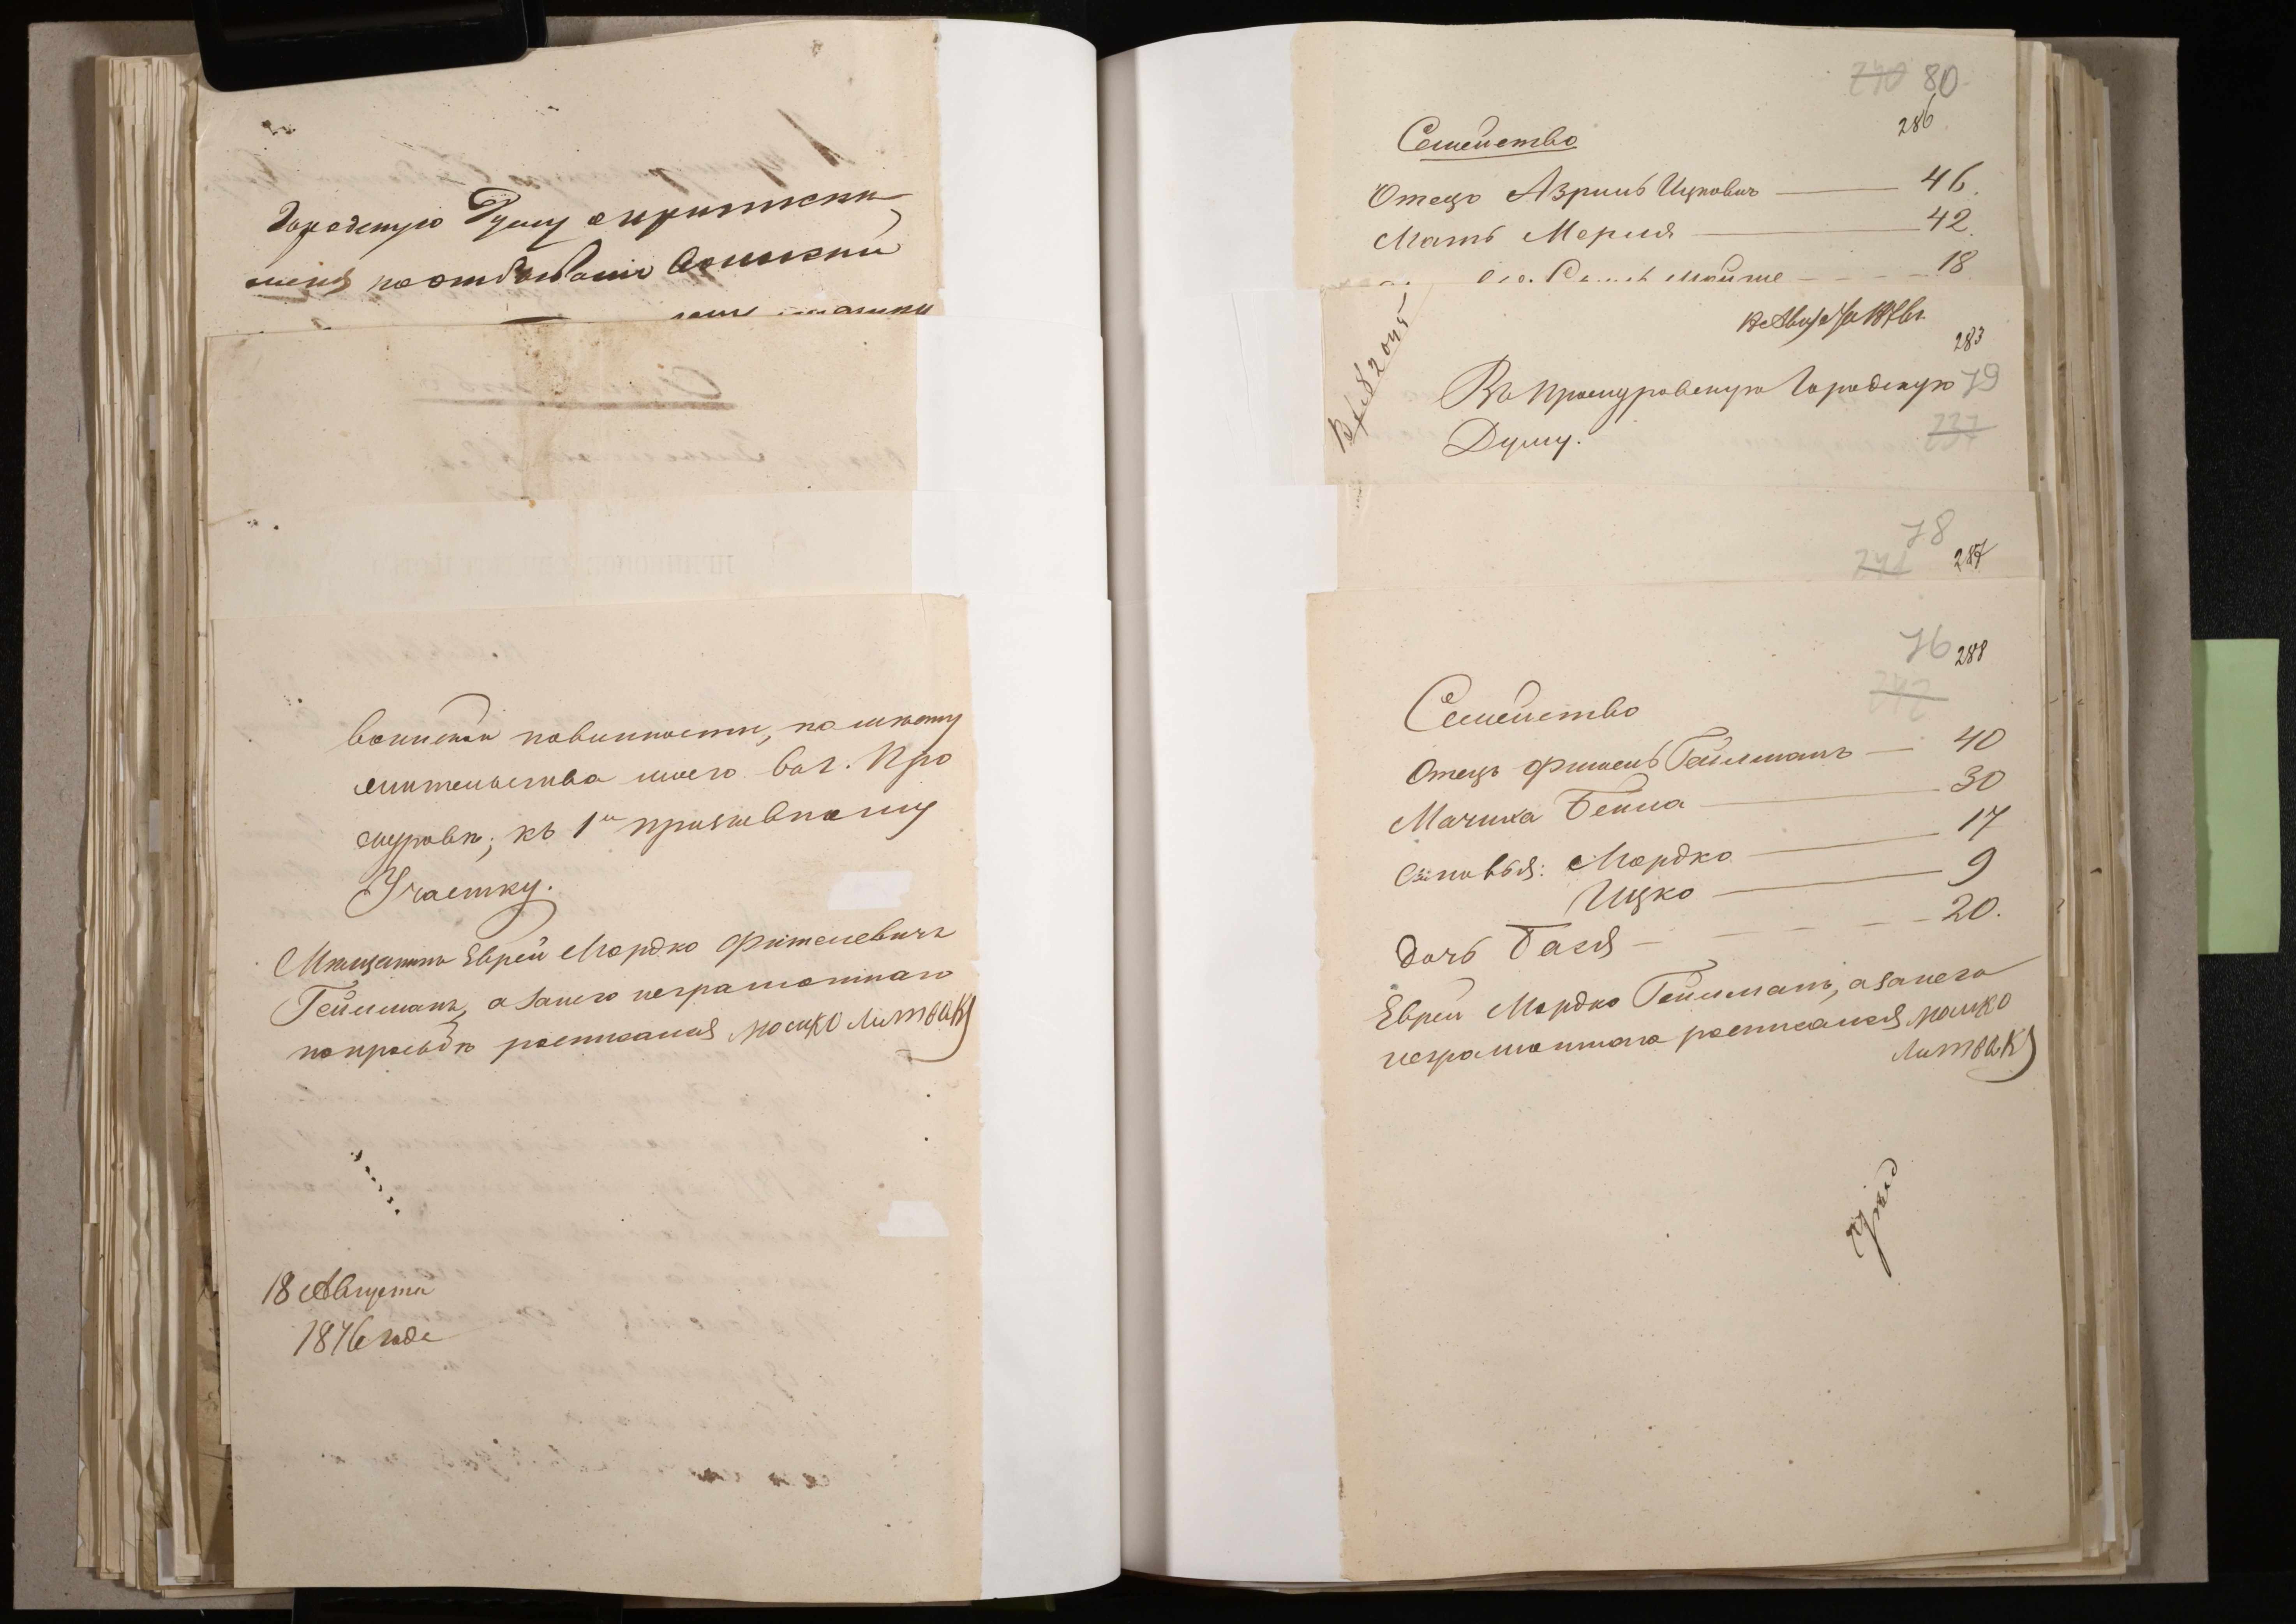 Городскую Думу о приписки
меня по отбыванию воинской
воинской повинности, по месту
жительства моего въ г. Про
скуровѣ, къ 1му призывному
Участку.
Мѣщанинъ Еврей Мордко Фишелевичъ
Гейлманъ, а за него неграмотнаго
по просьбѣ росписался Мошко Литвакъ
18 Августа
1876 года
240 80
286
Семейство
Отецъ Азриль Ицковичъ — 46.
Мать Мериля — 42.
Мойше — 18
283
Въ Проскуровскую Городскую 79
Думу.
237
78
241 287
76 288
242
Семейство
Отецъ Фишель Гейлманъ — 40
Мачиха Бейла — 30
Сыновья: Мордко — 17
Ицко — 9
Дочь Бася — 20.
Еврей Мордко Гейлманъ, а за него
неграмотнаго росписался Мошко
Литвакъ